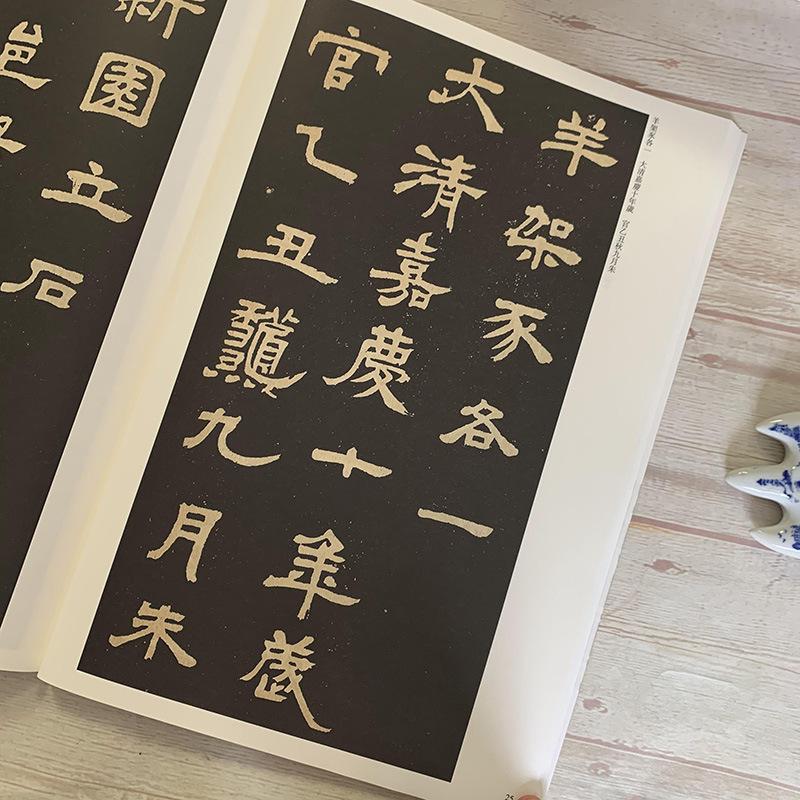 羊架豕各一
大清嘉慶十年歲
官乙丑龝九月朱
羊架豕各一　大清嘉慶十年歲　官乙丑秋九月朱
25
新園立石
邑